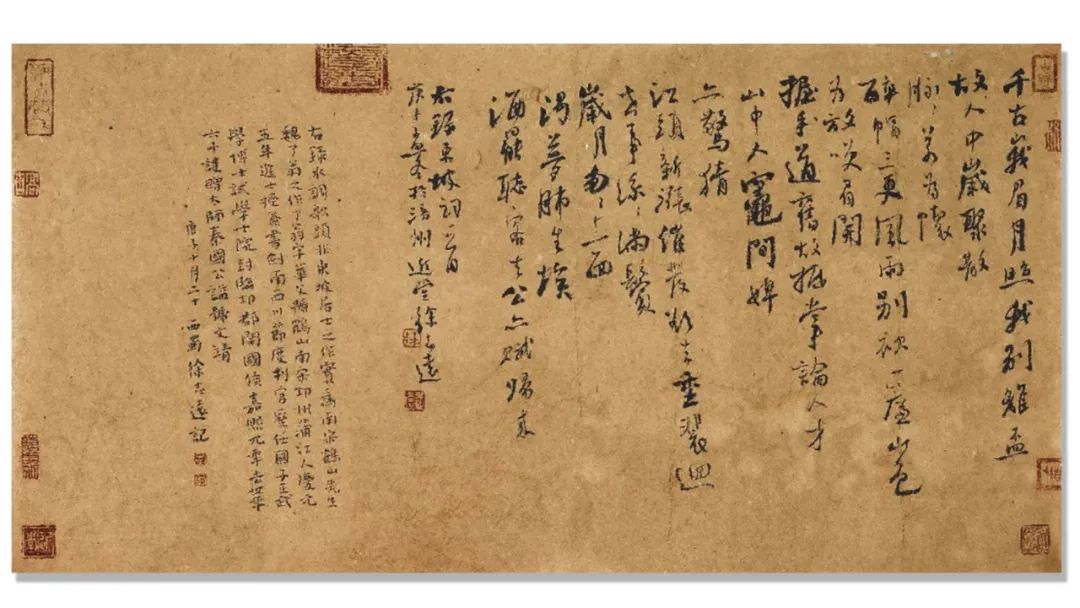 千古峩眉月照我別離盃
故人中歲聚散
脉々若为懷
醉帽三更風雨别袂一簾山色
为放笑眉開
握手道舊故抵掌論人才
山中人竈間婢
亦驚猜
江頭新漲催發欲去重裴迴
世事絲々滿鬢
歲月匆々上面
渴夢肺生埃
酒罷聽客去公亦賦歸來
右録東坡詞一首
庚子客於涪州 徐志遠
右録水調歌頭非東坡居士之作實為南宋鶴山先生
魏了翁之作了翁字華父號鶴山南宋邛州蒲江人慶元
五年進士授簽書劍南西川節度判官歷任國子正武
學博士試學士院封臨邛郡開國侯嘉熙元年去世年
六十贈太師秦國公謚號文靖
庚子十月二十 西蜀徐志遠記